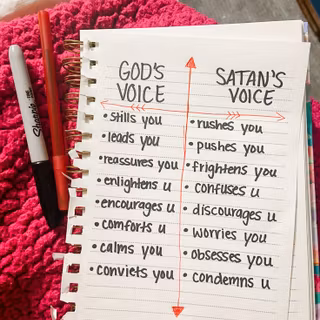 GOD'S
VOICE
• stills you
• leads you
• reassures you
• enlightens u
• encourages u
• comforts u
• calms you
• convicts you
SATAN'S
VOICE
• rushes you
• pushes you
• frightens you
• confuses u
• discourages u
• worries you
• obsesses you
• condemns u
Sharpie